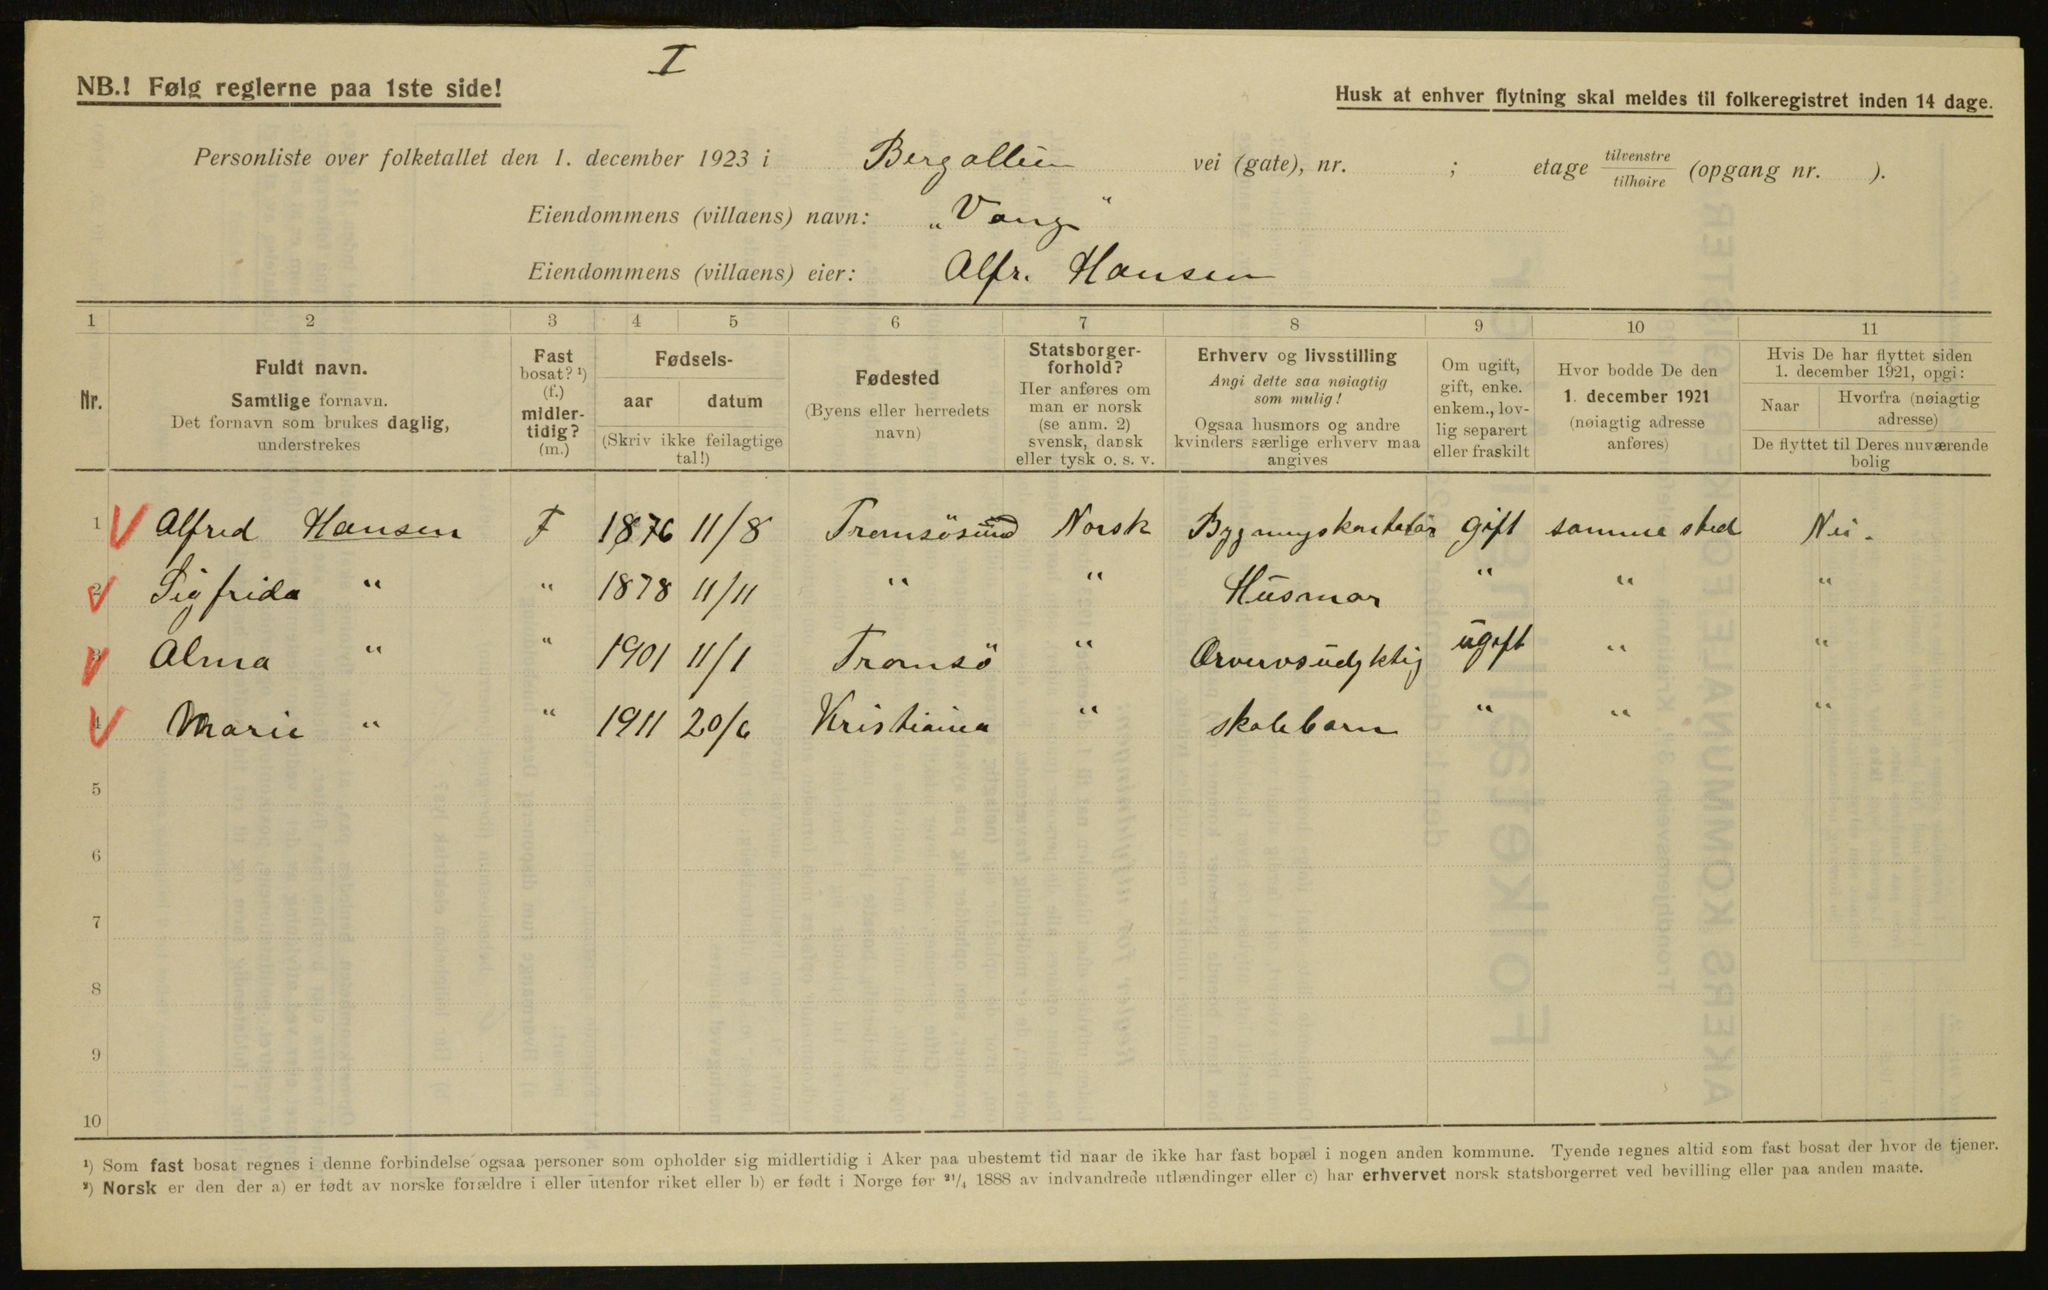 I
NB.! Følg reglerne paa 1ste side!
Husk at enhver flytning skal meldes til folkeregistret inden 14 dage.
Personliste over folketallet den 1. december 1923 i Bergalleen vei (gate), nr. ; etage tilvenstre/tilhøire (opgang nr. ).
Eiendommens (villaens) navn: „Vang"
Eiendommens (villaens) eier: Alfr. Hansen
1 2 3 4 5 6 7 8 9 10 11
Nr.
Fuldt navn.
Samtlige fornavn.
Det fornavn som brukes daglig,
understrekes
Fast
bosat? ¹)
(f.)
midler-
tidig?
(m.)
Fødsels-
aar datum
(Skriv ikke feilagtige
tal!)
Fødested
(Byens eller herredets
navn)
Statsborger-
forhold?
Her anføres om
man er norsk
(se anm. 2)
svensk, dansk
eller tysk o. s. v.
Erhverv og livsstilling
Angi dette saa nøiagtig
som mulig!
Ogsaa husmors og andre
kvinders særlige erhverv maa
angives
Om ugift,
gift, enke.
enkem., lov-
lig separert
eller fraskilt
Hvor bodde De den
1. december 1921
(nøiagtig adresse
anføres)
Hvis De har flyttet siden
1. december 1921, opgi:
Naar Hvorfra (nøiagtig
adresse)
De flyttet til Deres nuværende
bolig
1 Alfred Hansen F 1876 11/8 Tromsösund Norsk gift samme sted Nei.
2 Sigfrida " " 1878 11/11 " " Husmor " " "
3 Alma " " 1901 11/1 Tromsö " Ervervsudyktig ugift " "
4 Marie " " 1911 20/6 Kristiania " skolebarn " " "
5
6
7
8
9
10
¹) Som fast bosat regnes i denne forbindelse ogsaa personer som opholder sig midlertidig i Aker paa ubestemt tid naar de ikke har fast bopæl i nogen anden kommune. Tyende regnes altid som fast bosat der hvor de tjener.
²) Norsk er den der a) er født av norske forældre i eller utenfor riket eller b) er født i Norge før ²¹/₄ 1888 av indvandrede utlændinger eller c) har erhvervet norsk statsborgerret ved bevilling eller paa anden maate.